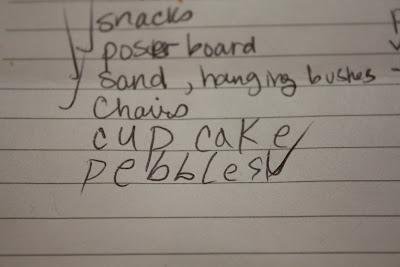 snacks
poster board
sand, hanging bushes
Chairs
cup cake
pebbles